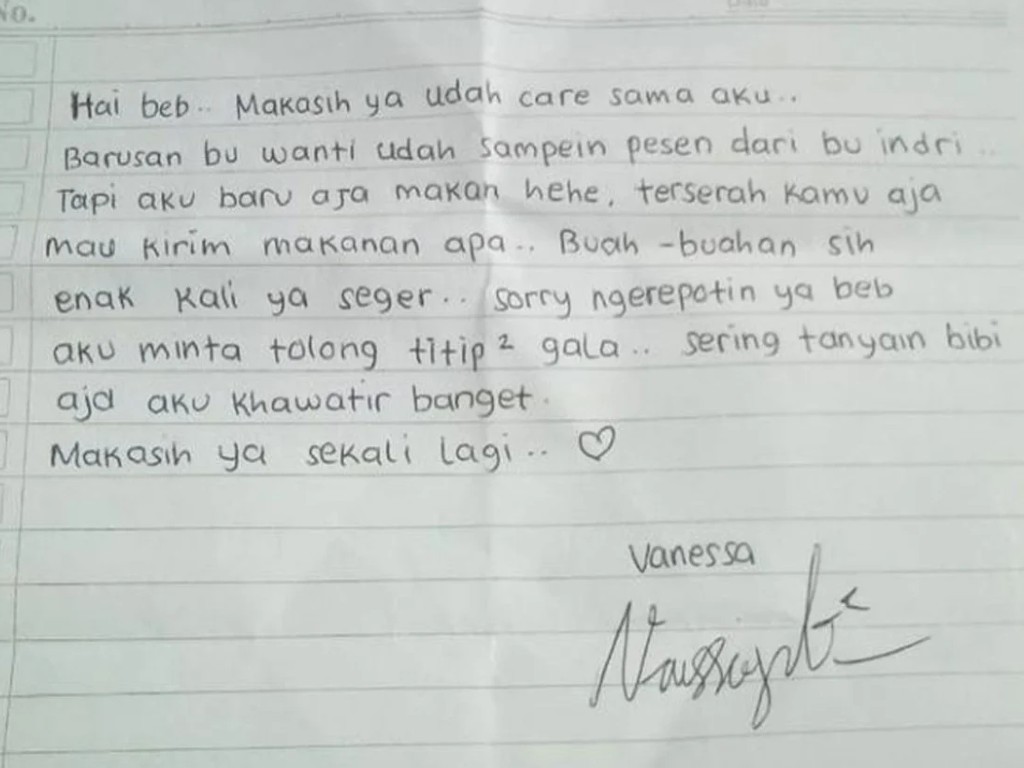 No.
Hai beb.. Makasih ya udah care sama aku..
Barusan bu wanti udah sampein pesen dari bu indri..
Tapi aku baru aja makan hehe, terserah kamu aja
mau kirim makanan apa.. Buah-buahan sih
enak kali ya seger.. sorry ngerepotin ya beb
aku minta tolong titip² gala.. sering tanyain bibi
aja aku khawatir banget.
Makasih ya sekali lagi.. ♡
Vanessa